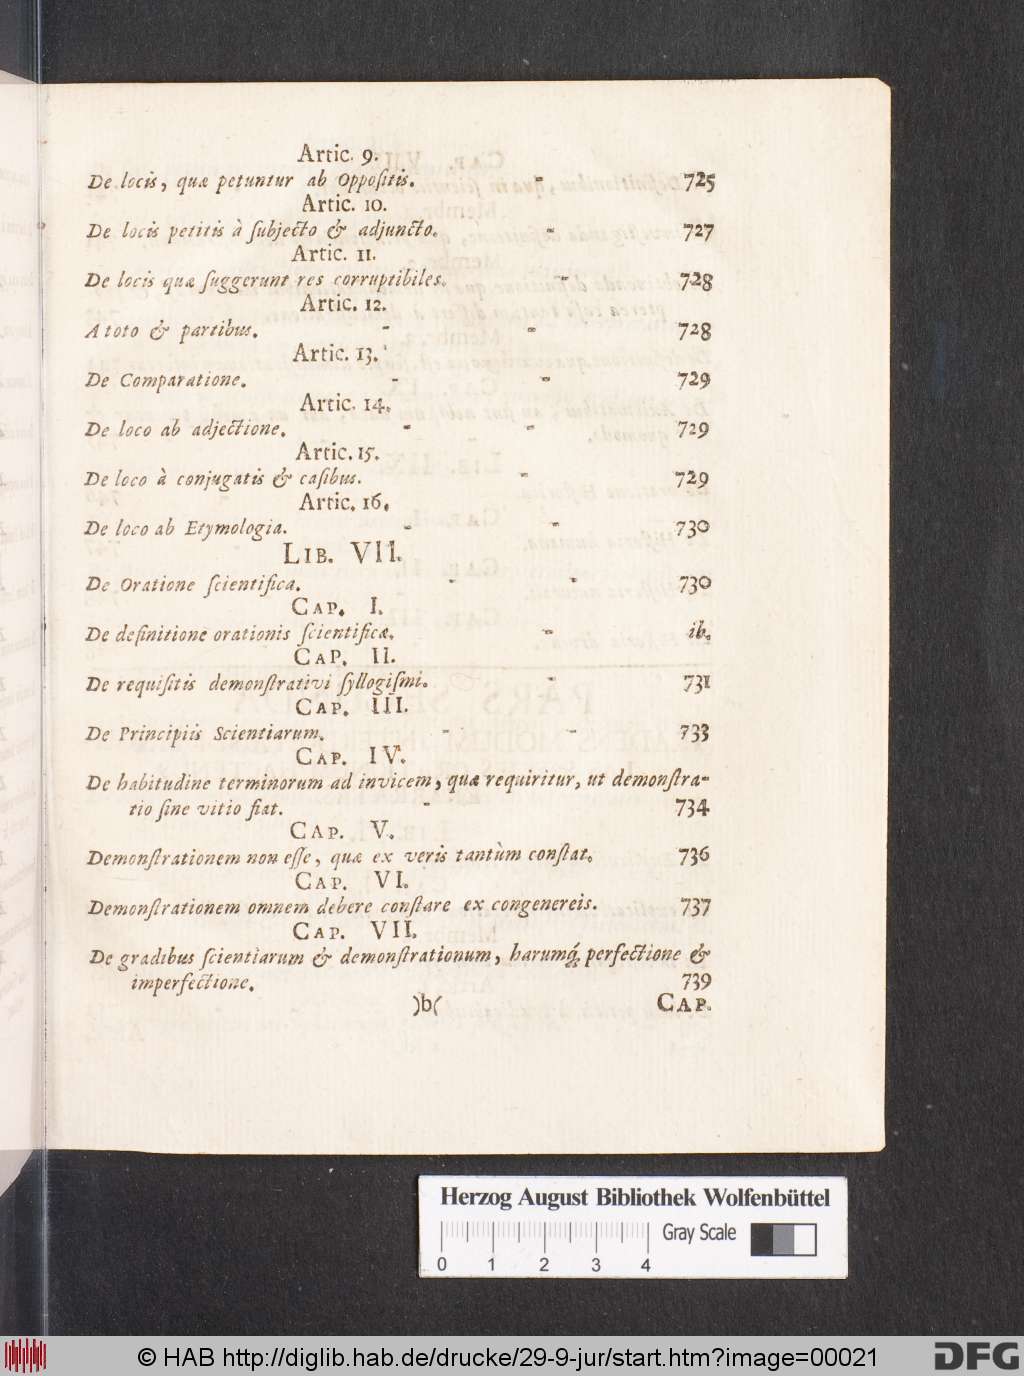 Artic. 9.
De locis, quæ petuntur ab Oppoſitis. - 725
Artic. 10.
De locis petitis à ſubjecto & adjuncto. - 727
Artic. 11.
De locis quæ ſuggerunt res corruptibiles. - 728
Artic. 12.
A toto & partibus. - - 728
Artic. 13.
De Comparatione. - - 729
Artic. 14.
De loco ab adjectione. - - 729
Artic. 15.
De loco à conjugatis & caſibus. - 729
Artic. 16.
De loco ab Etymologia. - - 730
LIB. VII.
De Oratione ſcientifica. - - 730
CAP. I.
De definitione orationis ſcientificæ. - ib.
CAP. II.
De requiſitis demonſtrativi ſyllogiſmi. - 731
CAP. III.
De Principiis Scientiarum. - - 733
CAP. IV.
De habitudine terminorum ad invicem, quæ requiritur, ut demonſtra-
tio ſine vitio fiat. - 734
CAP. V.
Demonſtrationem non eſſe, quæ ex veris tantùm conſtat. 736
CAP. VI.
Demonſtrationem omnem debere conſtare ex congenereis. 737
CAP. VII.
De gradibus ſcientiarum & demonſtrationum, harumq́; perfectione &
imperfectione. 739
)b( CAP.
Herzog August Bibliothek Wolfenbüttel
Gray Scale
0 1 2 3 4
© HAB http://diglib.hab.de/drucke/29-9-jur/start.htm?image=00021
DFG